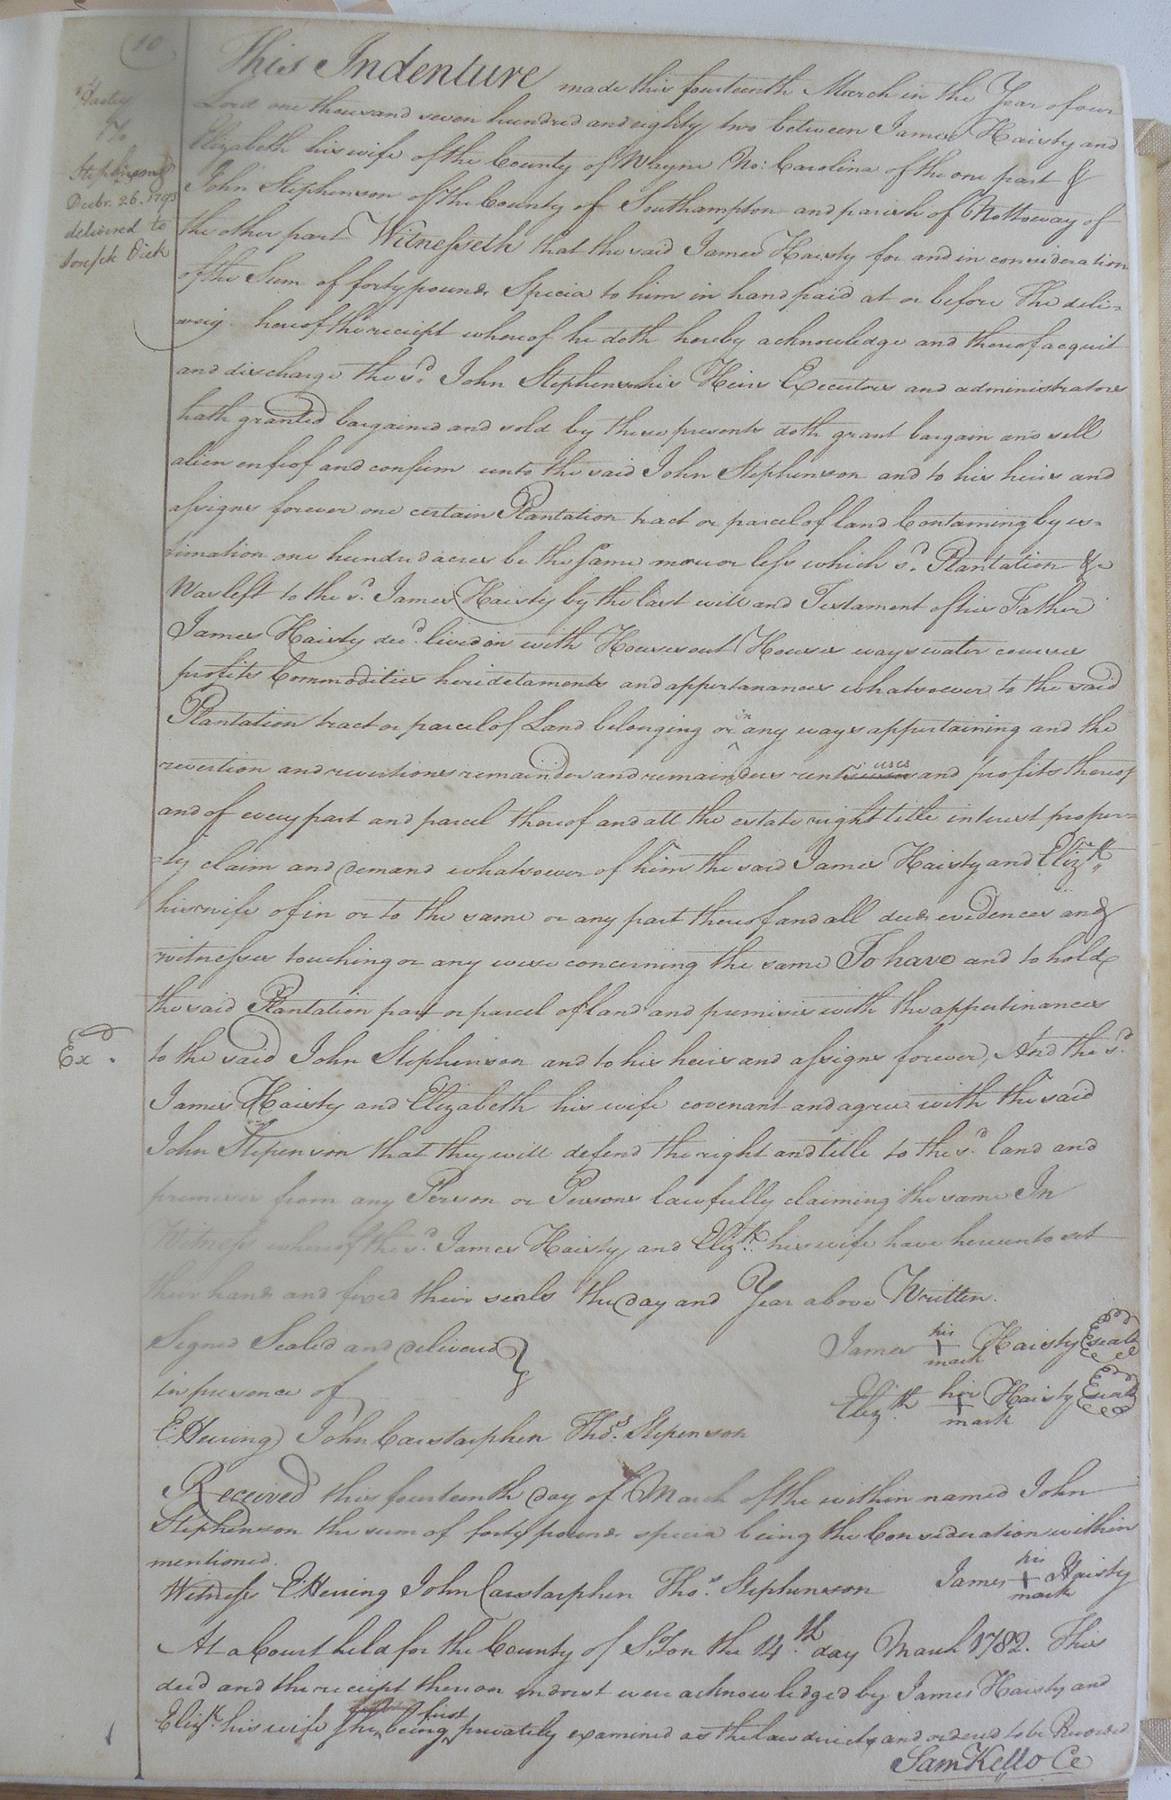 10
Hasty
To
Stephenson
Decbr. 26. 1795
delivered to
Joseph Dick
This Indenture made this fourteenth March in the Year of our
Lord one thousand seven hundred and eighty two between James Haisty and
Elizabeth his wife of the County of Wayne No: Carolina of the one part &
John Stephenson of the County of Southampton and parish of Nottoway of
the other part Witnesseth that the said James Haisty for and in consideration
of the Sum of forty pounds Specia to him in hand paid at or before The deli-
hereof the receipt whereof he doth hereby acknowledge and thereof acquit
and discharge the sd. John Stephenson his Heirs Executors and administrators
hath granted bargained and sold by these presents doth grant bargain and sell
alien enfeof and confirm unto the said John Stephenson and to his heirs and
assigns forever one certain Plantation tract or parcel of land Containing by es-
timation one hundred acres be the same more or less which sd. Plantation &c
Was left to the sd. James Haisty by the last will and Testament of his Father
James Haisty decd. lived on with Houses out Houses ways water courses
profits Commodities heridetaments and appertanances whatsoever to the said
Plantation tract or parcel of Land belonging or in any ways appertaining and the
revertion and revertions remainder and remainders rents uses and profits thereof
and of every part and parcel thereof and all the estate right title interest proper-
-ty claim and demand whatsoever of him the said James Haisty and Elizth.
his wife of in or to the same or any part thereof and all deeds evidences and
witnesses touching or any wise concerning the same To have and to hold
the said Plantation part or parcel of land and premises with the appertinances
Ex.
to the said John Stephenson and to his heirs and assigns forever, And the sd.
James Haisty and Elizabeth his wife covenant and agree with the said
John Stepenson that they will defend the right and title to the sd. land and
premises from any Person or Persons lawfully claiming the same In
Witness whereof the sd. James Haisty and Elizth. his wife have hereunto set
their hands and fixed their seals the day and Year above Written.
Signed Sealed and delivered } James his + mark Haisty seal
in presence of Elizth. her + mark Haisty seal
E Herring John Carstarphen Thos. Stepenson
Received this fourteenth day of March of the within named John
Stephenson the sum of forty pounds specia being the Consideration within
mentioned.
Witness E Herring John Carstarphen Thos. Stephenson James his + mark Haisty
At a Court held for the County of S.Ton the 14th. day March 1782. This
deed and the receipt thereon indorst were acknowledged by James Haisty and
Elizth. his wife she being first privately examined as the law directs and ordered to be Recorded
Sam Kello Cc